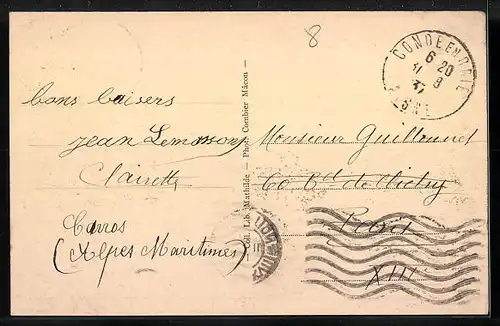 8
CONDÉ EN BRIE
6 20
31 8
37
AISNE
bons baisers
Jean Lemosson
Clairette
Carros
(Alpes Maritimes)
Coll. Lib. Mathilde – Phot. Combier Mâcon –
Monsieur
60 Bd de Clichy
Paris